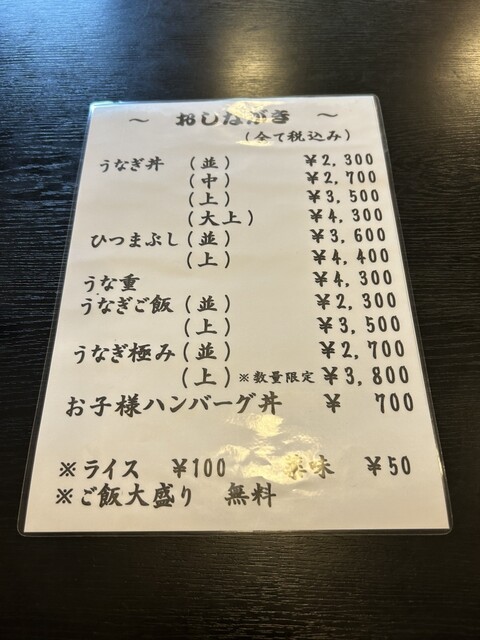 ～ おしながき ～
(全て税込み)
うなぎ丼 (並) ¥2,300
(中) ¥2,700
(上) ¥3,500
(大上) ¥4,300
ひつまぶし (並) ¥3,600
(上) ¥4,400
うな重 ¥4,300
うなぎご飯 (並) ¥2,300
(上) ¥3,500
うなぎ極み (並) ¥2,700
(上) ※数量限定 ¥3,800
お子様ハンバーグ丼 ¥ 700
※ライス ¥100 薬味 ¥50
※ご飯大盛り 無料